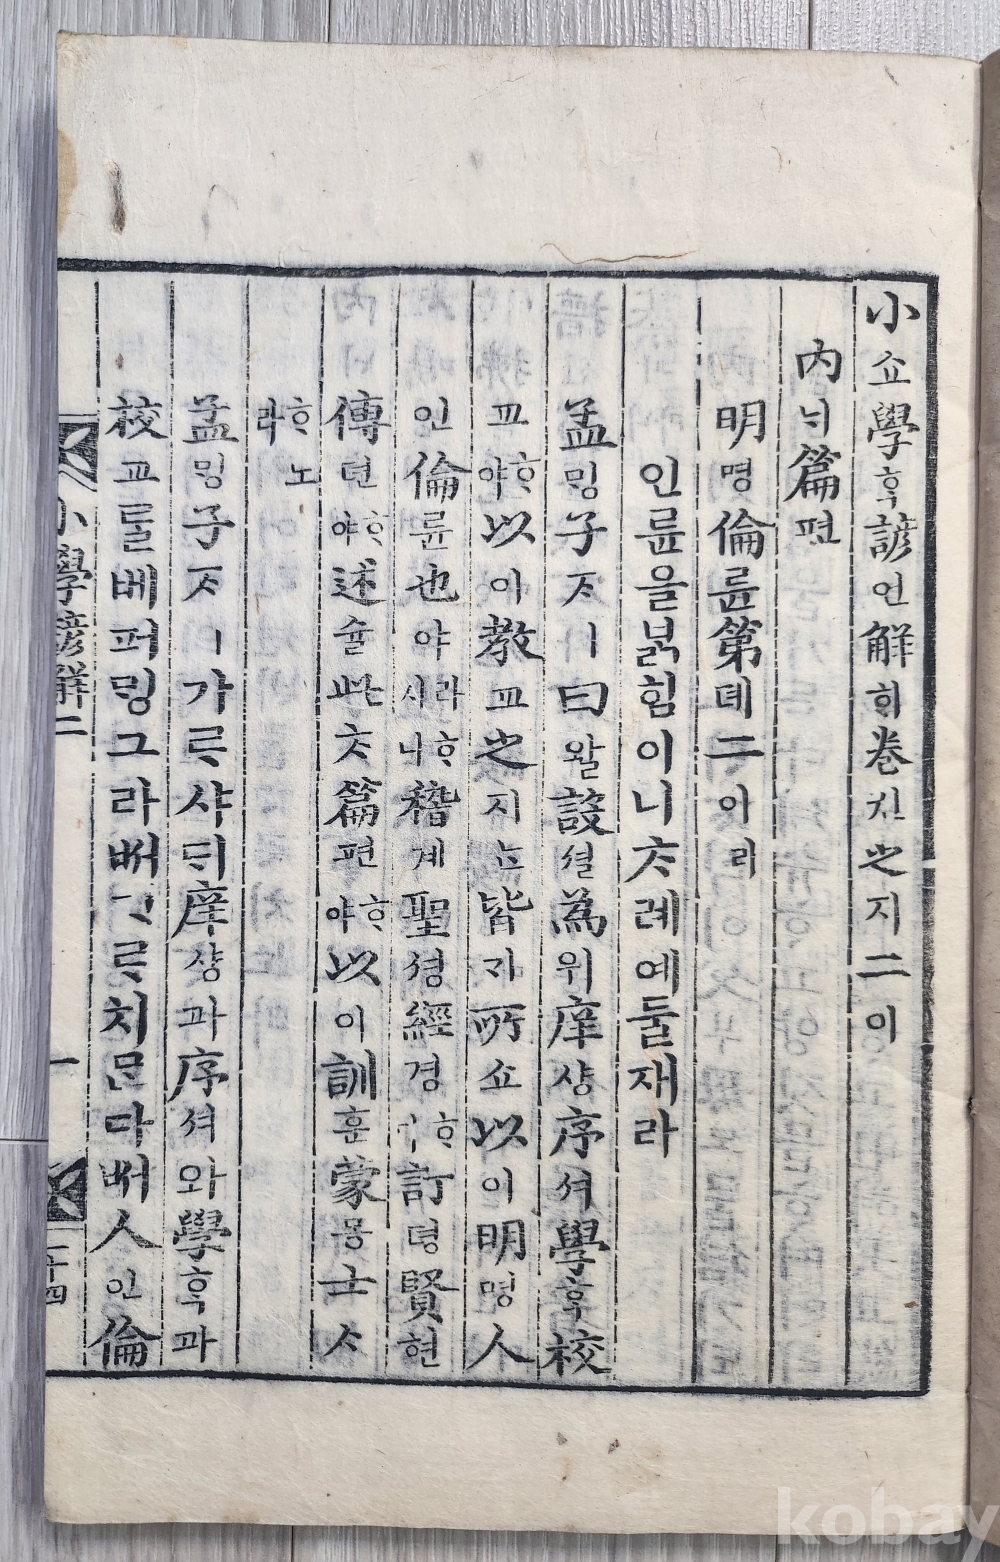 小쇼學ᄒᆞᆨ諺언解ᄒᆡ卷권之지二이
內ᄂᆡ篇편
明명倫륜第뎨二이
인륜을ᄇᆞᆰ힘이니ᄎᆞ례예둘재라
孟ᄆᆡᆼ子ᄌᆞㅣ曰왈設셜為위庠샹序셔學ᄒᆞᆨ校
교ᄒᆞ야以이敎교之지ᄂᆞᆫ皆ᄀᆡ所쇼以이明명人
인倫륜也야라ᄒᆞ시니稽계聖셩經경ᄒᆞ訂뎡賢현
傳뎐ᄒᆞ야述슐此ᄎᆞ篇편ᄒᆞ야以이訓훈蒙몽士ᄉᆞ
ᄒᆞ노라
孟ᄆᆡᆼ子ᄌᆞㅣ가ᄅᆞ샤ᄃᆡ庠샹과序셔와學ᄒᆞᆨ과
校교ᄅᆞᆯ베퍼ᄆᆡᆼ그라ᄡᅥᄀᆞᄅᆞ치ᄆᆞᆫ다ᄡᅥ人인倫
小學諺解二
一
二十四
kobay